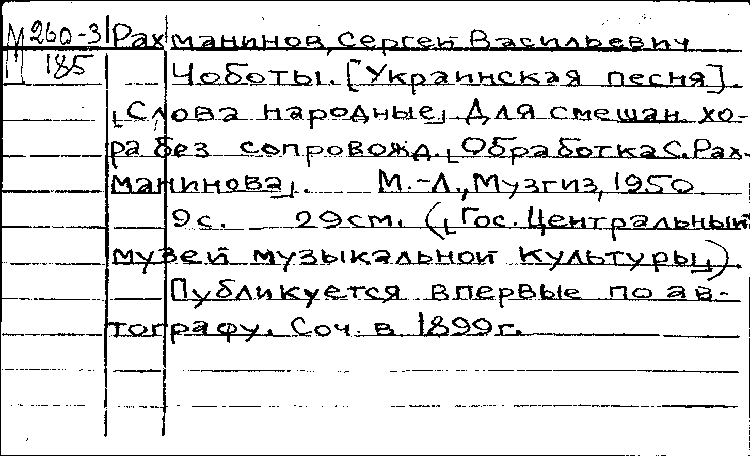 М 260-3 Рахманинов, Сергей Васильевич
185 Чоботы. [Украинская песня].
[Слова народные]. Для смешан. хо-
ра без сопровожд. [Обработка С. Рах-
манинова]. М.-Л., Музгиз, 1950.
9с. 29см. ([Гос. Центральный
музей музыкальной культуры]).
Публикуется впервые по ав-
тографу. Соч. в 1899г.